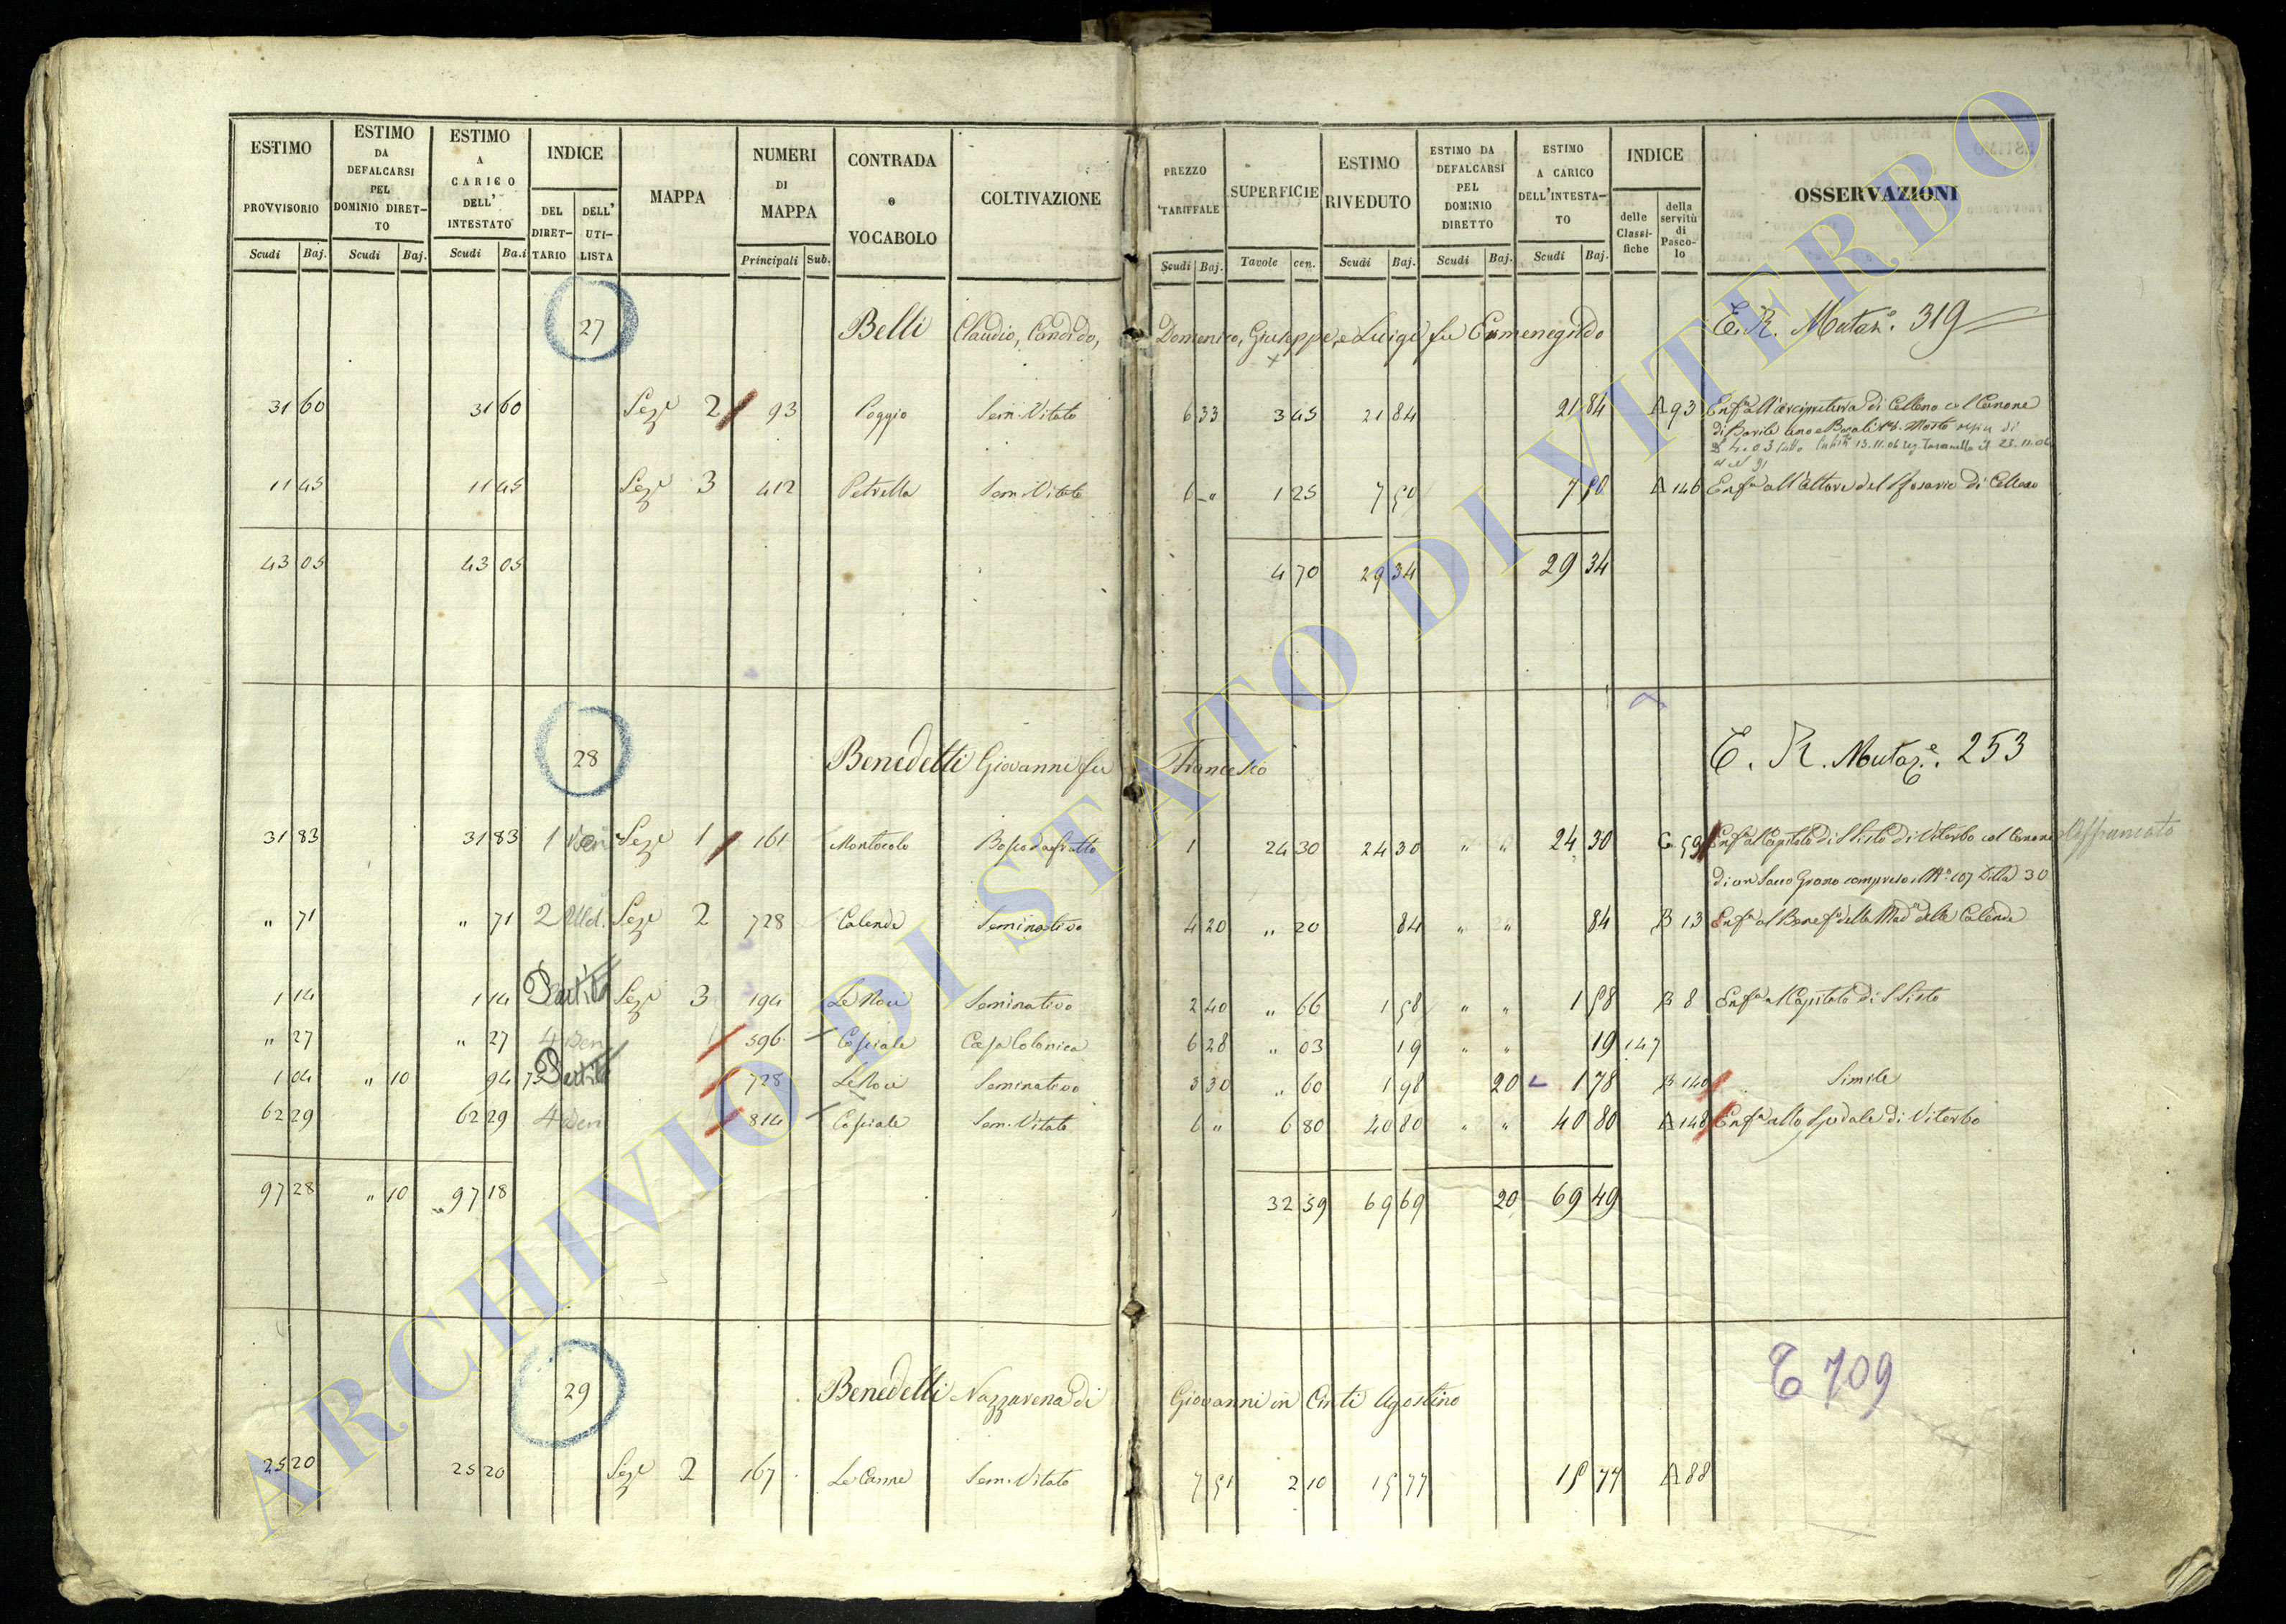 ESTIMO PROVVISORIO Scudi Baj. | ESTIMO DA DEFALCARSI PEL DOMINIO DIRET-TO Scudi Baj. | ESTIMO A CARICO DELL' INTESTATO Scudi Ba.i | INDICE DEL DIRET-TARIO DELL' UTI-LISTA | MAPPA | NUMERI DI MAPPA Principali Sub. | CONTRADA o VOCABOLO | COLTIVAZIONE | PREZZO TARIFFALE Scudi Baj. | SUPERFICIE Tavole cen. | ESTIMO RIVEDUTO Scudi Baj. | ESTIMO DA DEFALCARSI PEL DOMINIO DIRETTO Scudi Baj. | ESTIMO A CARICO DELL'INTESTA-TO Scudi Baj. | INDICE delle Classi-fiche della servitù di Pasco-lo | OSSERVAZIONI
27 Belli Claudio, Candido, Domenico, Giuseppe, e Luigi fu Ermenegildo E. R. Mutaz.e 319
31 60 31 60 Sez.e 2 93 Poggio Sem. Vitato 6 33 3 45 21 84 21 84 A 93 Enf.a all'arcipretura di Celleno col Canone
di Barile uno e Bocali Mosto
11 45 11 45 Sez.e 3 412 Petrella Sem. Vitato 6 " 1 25 7 50 7 50 A 146 Enf.a all'Altare del Rosario di Celleno
43 05 43 05 4 70 29 34 29 34
28 Benedetti Giovanni fu Francesco E. R. Mutaz.e. 253
31 83 31 83 1 Ben Sez.e 1 161 Montecolo Bosco da frutto 1 24 30 24 30 " " 24 30 C 59 Enf.a al Capitolo di S Sisto di Viterbo col Canone Affrancato
di un Sacco Grano compreso il N.o 107 Ditta 30
" 71 " 71 2 Sez.e 2 728 Calende Seminativo 4 20 " 20 84 " " 84 B 13 Enf.a al Benef.o della Mad.a delle Calende
1 14 1 14 Partita Sez.e 3 194 Le Noci Seminativo 2 40 " 66 1 58 " " 1 58 B 8 Enf.a al Capitolo di S Sisto
" 27 " 27 4 Ben 596 Casciale Casa Colonica 6 28 " 03 19 " " 19 147
1 04 " 10 94 Partita 728 Le Noci Seminativo 3 30 " 60 1 98 20 1 78 B 140 Simile
62 29 62 29 4 Ben 814 Casciale Sem. Vitato 6 " 6 80 40 80 " " 40 80 A 148 Enf.a allo Spedale di Viterbo
97 28 " 10 97 18 32 59 69 69 20 69 49
29 Benedetti Nazzarena di Giovanni in Cinti Agostino E 709
25 20 25 20 Sez.e 2 167 Le Canne Sem. Vitato 7 51 2 10 15 77 15 77 A 88
ARCHIVIO DI STATO DI VITERBO